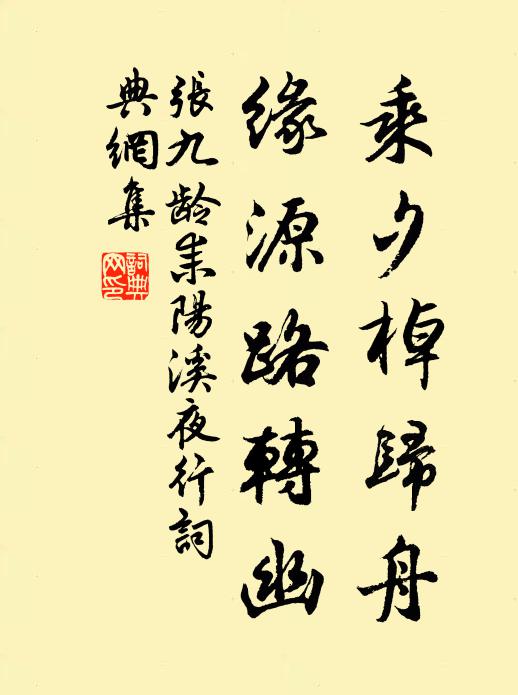 乘夕棹歸舟
緣源路轉幽
張九龄耒陽溪夜行詞
典網集
詞典
网印